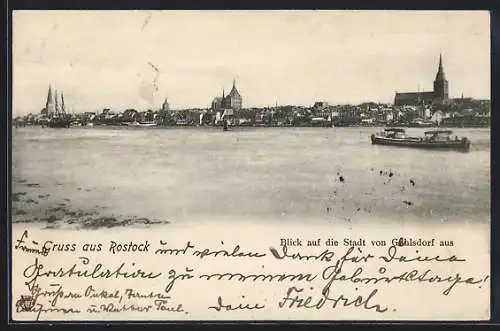 Gruss aus Rostock
Blick auf die Stadt von Gehlsdorf aus
und vielen Dank für Deine
Gratulation zu meinem Geburtstage!
Grüssen Onkel, Tanten
Dein Friedrich
u.